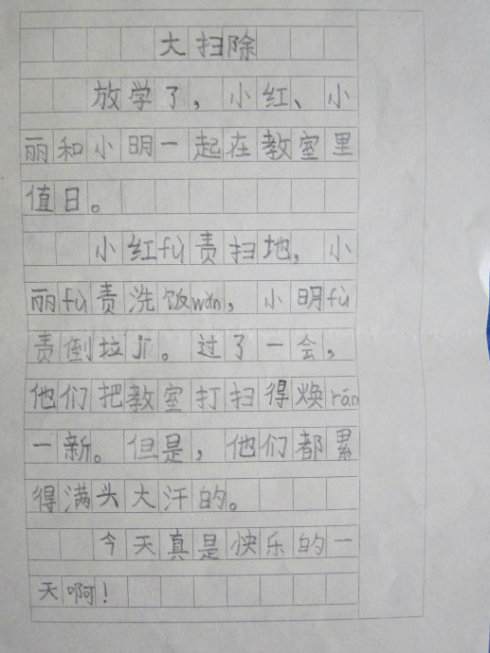 大扫除
放学了，小红、小
丽和小明一起在教室里
值日。
小红fù责扫地，小
丽fù责洗饭wǎn，小明fù
责倒垃jī。过了一会，
他们把教室打扫得焕rán
一新。但是，他们都累
得满头大汗的。
今天真是快乐的一
天啊！